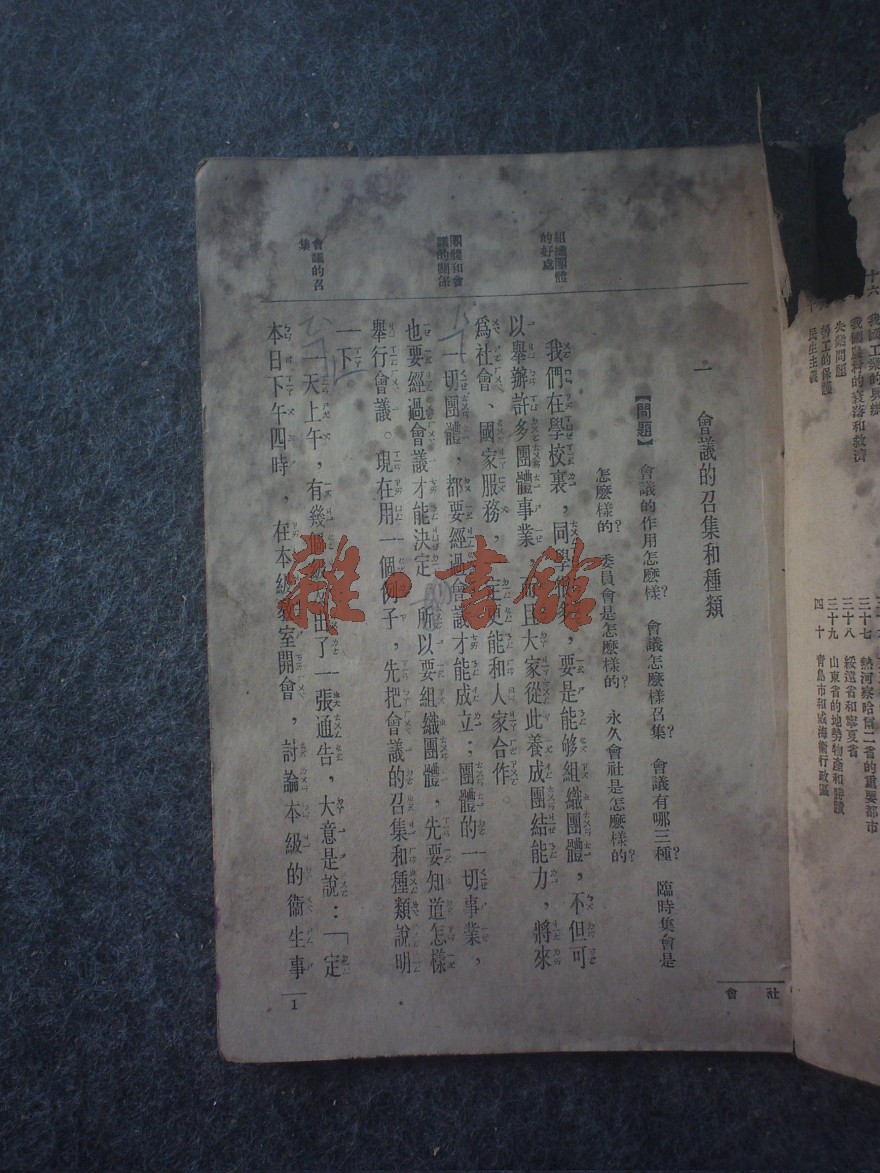 一　會議的召集和種類
【問題】　會議的作用怎麽樣？　會議怎麽樣召集？　會議有哪三種？　臨時集會是
怎麽樣的？　委員會是怎麽樣的？　永久會社是怎麽樣的？
組織團體
的好處
我們在學校裏，同學，要是能够組織團體，不但可
以舉辦許多團體事業，而且大家從此養成團結能力，將來
爲社會、國家服務，一定更能和人家合作。
團體和會
議的關係
一切團體，都要經過會議才能成立；團體的一切事業，
也要經過會議才能決定。所以要組織團體，先要知道怎樣
舉行會議。現在用一個例子，先把會議的召集和種類說明
一下。
會議的召
集
一天上午，有幾個出了一張通告，大意是說：「定
本日下午四時，在本級教室開會，討論本級的衞生事
1
社會
雜·書館
我國工業的興辦
我國農村的衰落和救濟
失業問題
勞工的保護
民生主義
三十七　熱河察哈爾二省的重要都市
三十八　綏遠省和寧夏省
三十九　山東省的地勢物產和勝蹟
四十　青島市和威海衞行政區